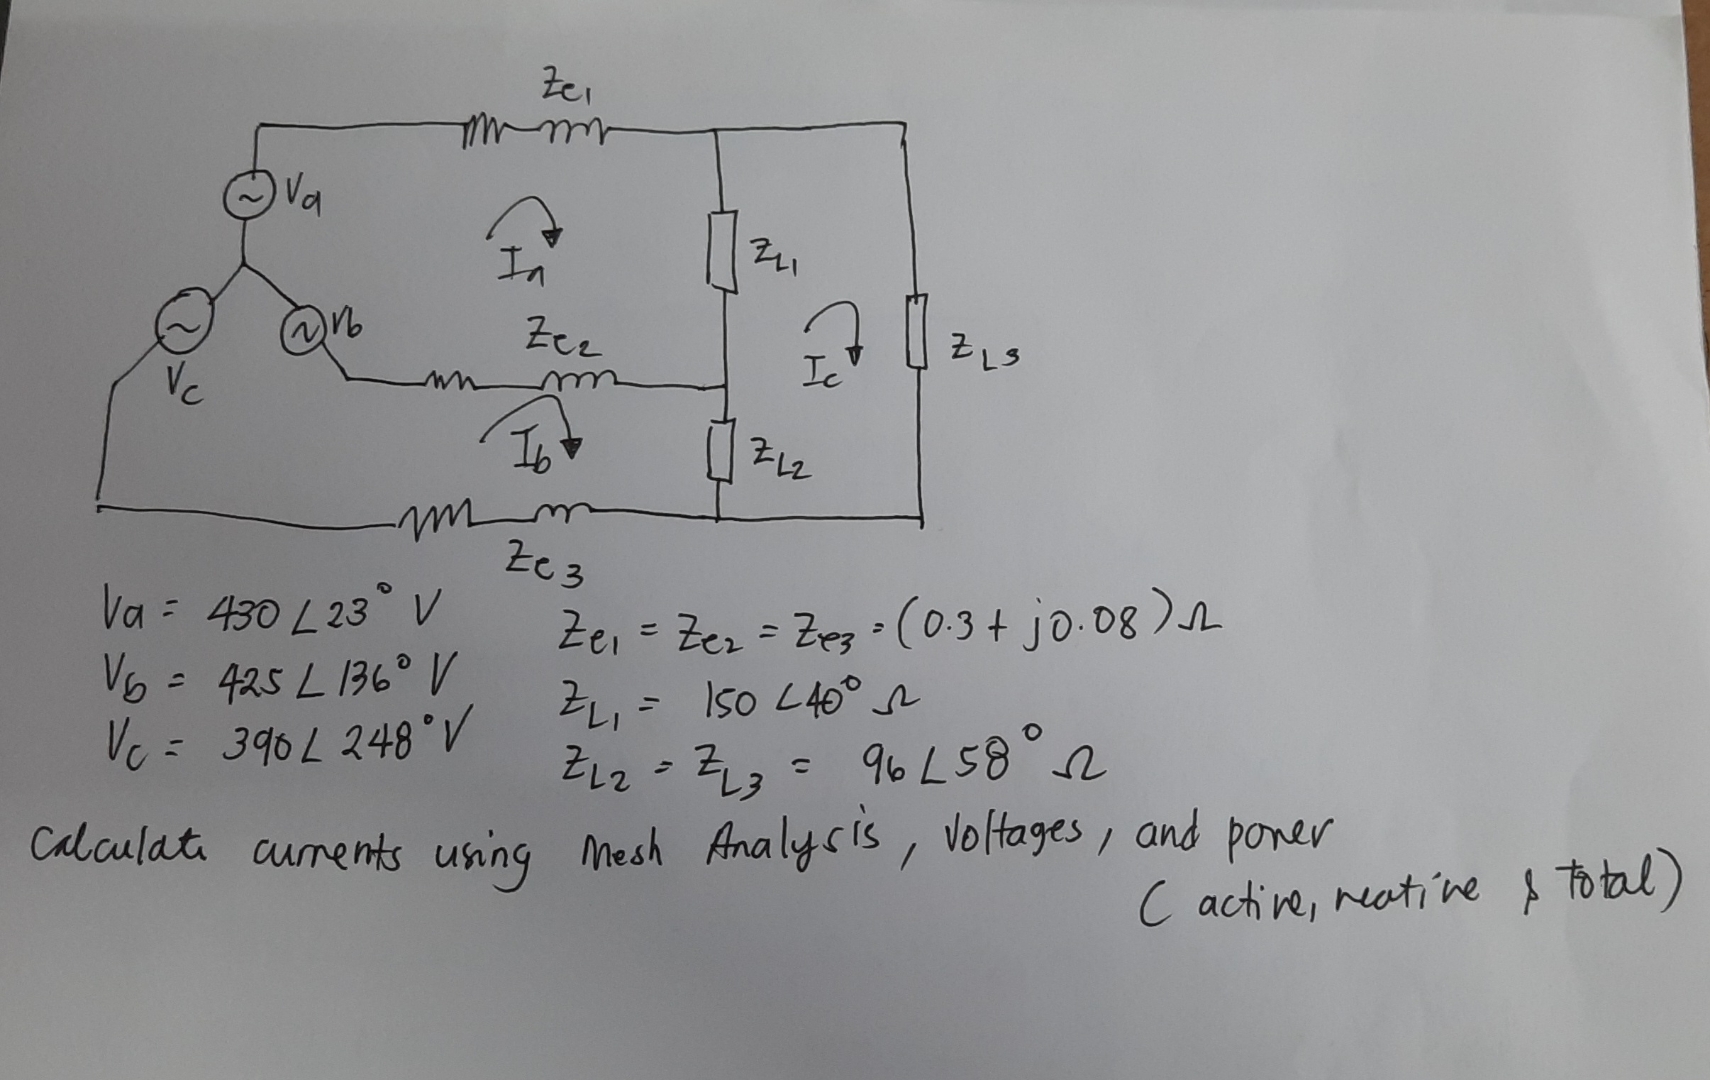 Ze1
Va
In
ZL1
Vb
Ze2
Ic
ZL3
Vc
Ib
ZL2
Ze3
Va = 430∠23° V
Vb = 425∠136° V
Vc = 390∠248° V
Ze1 = Ze2 = Ze3 = (0.3 + j0.08)Ω
ZL1 = 150∠40° Ω
ZL2 = ZL3 = 96∠58° Ω
Calculate currents using Mesh Analysis, Voltages, and power
(active, reative & total)